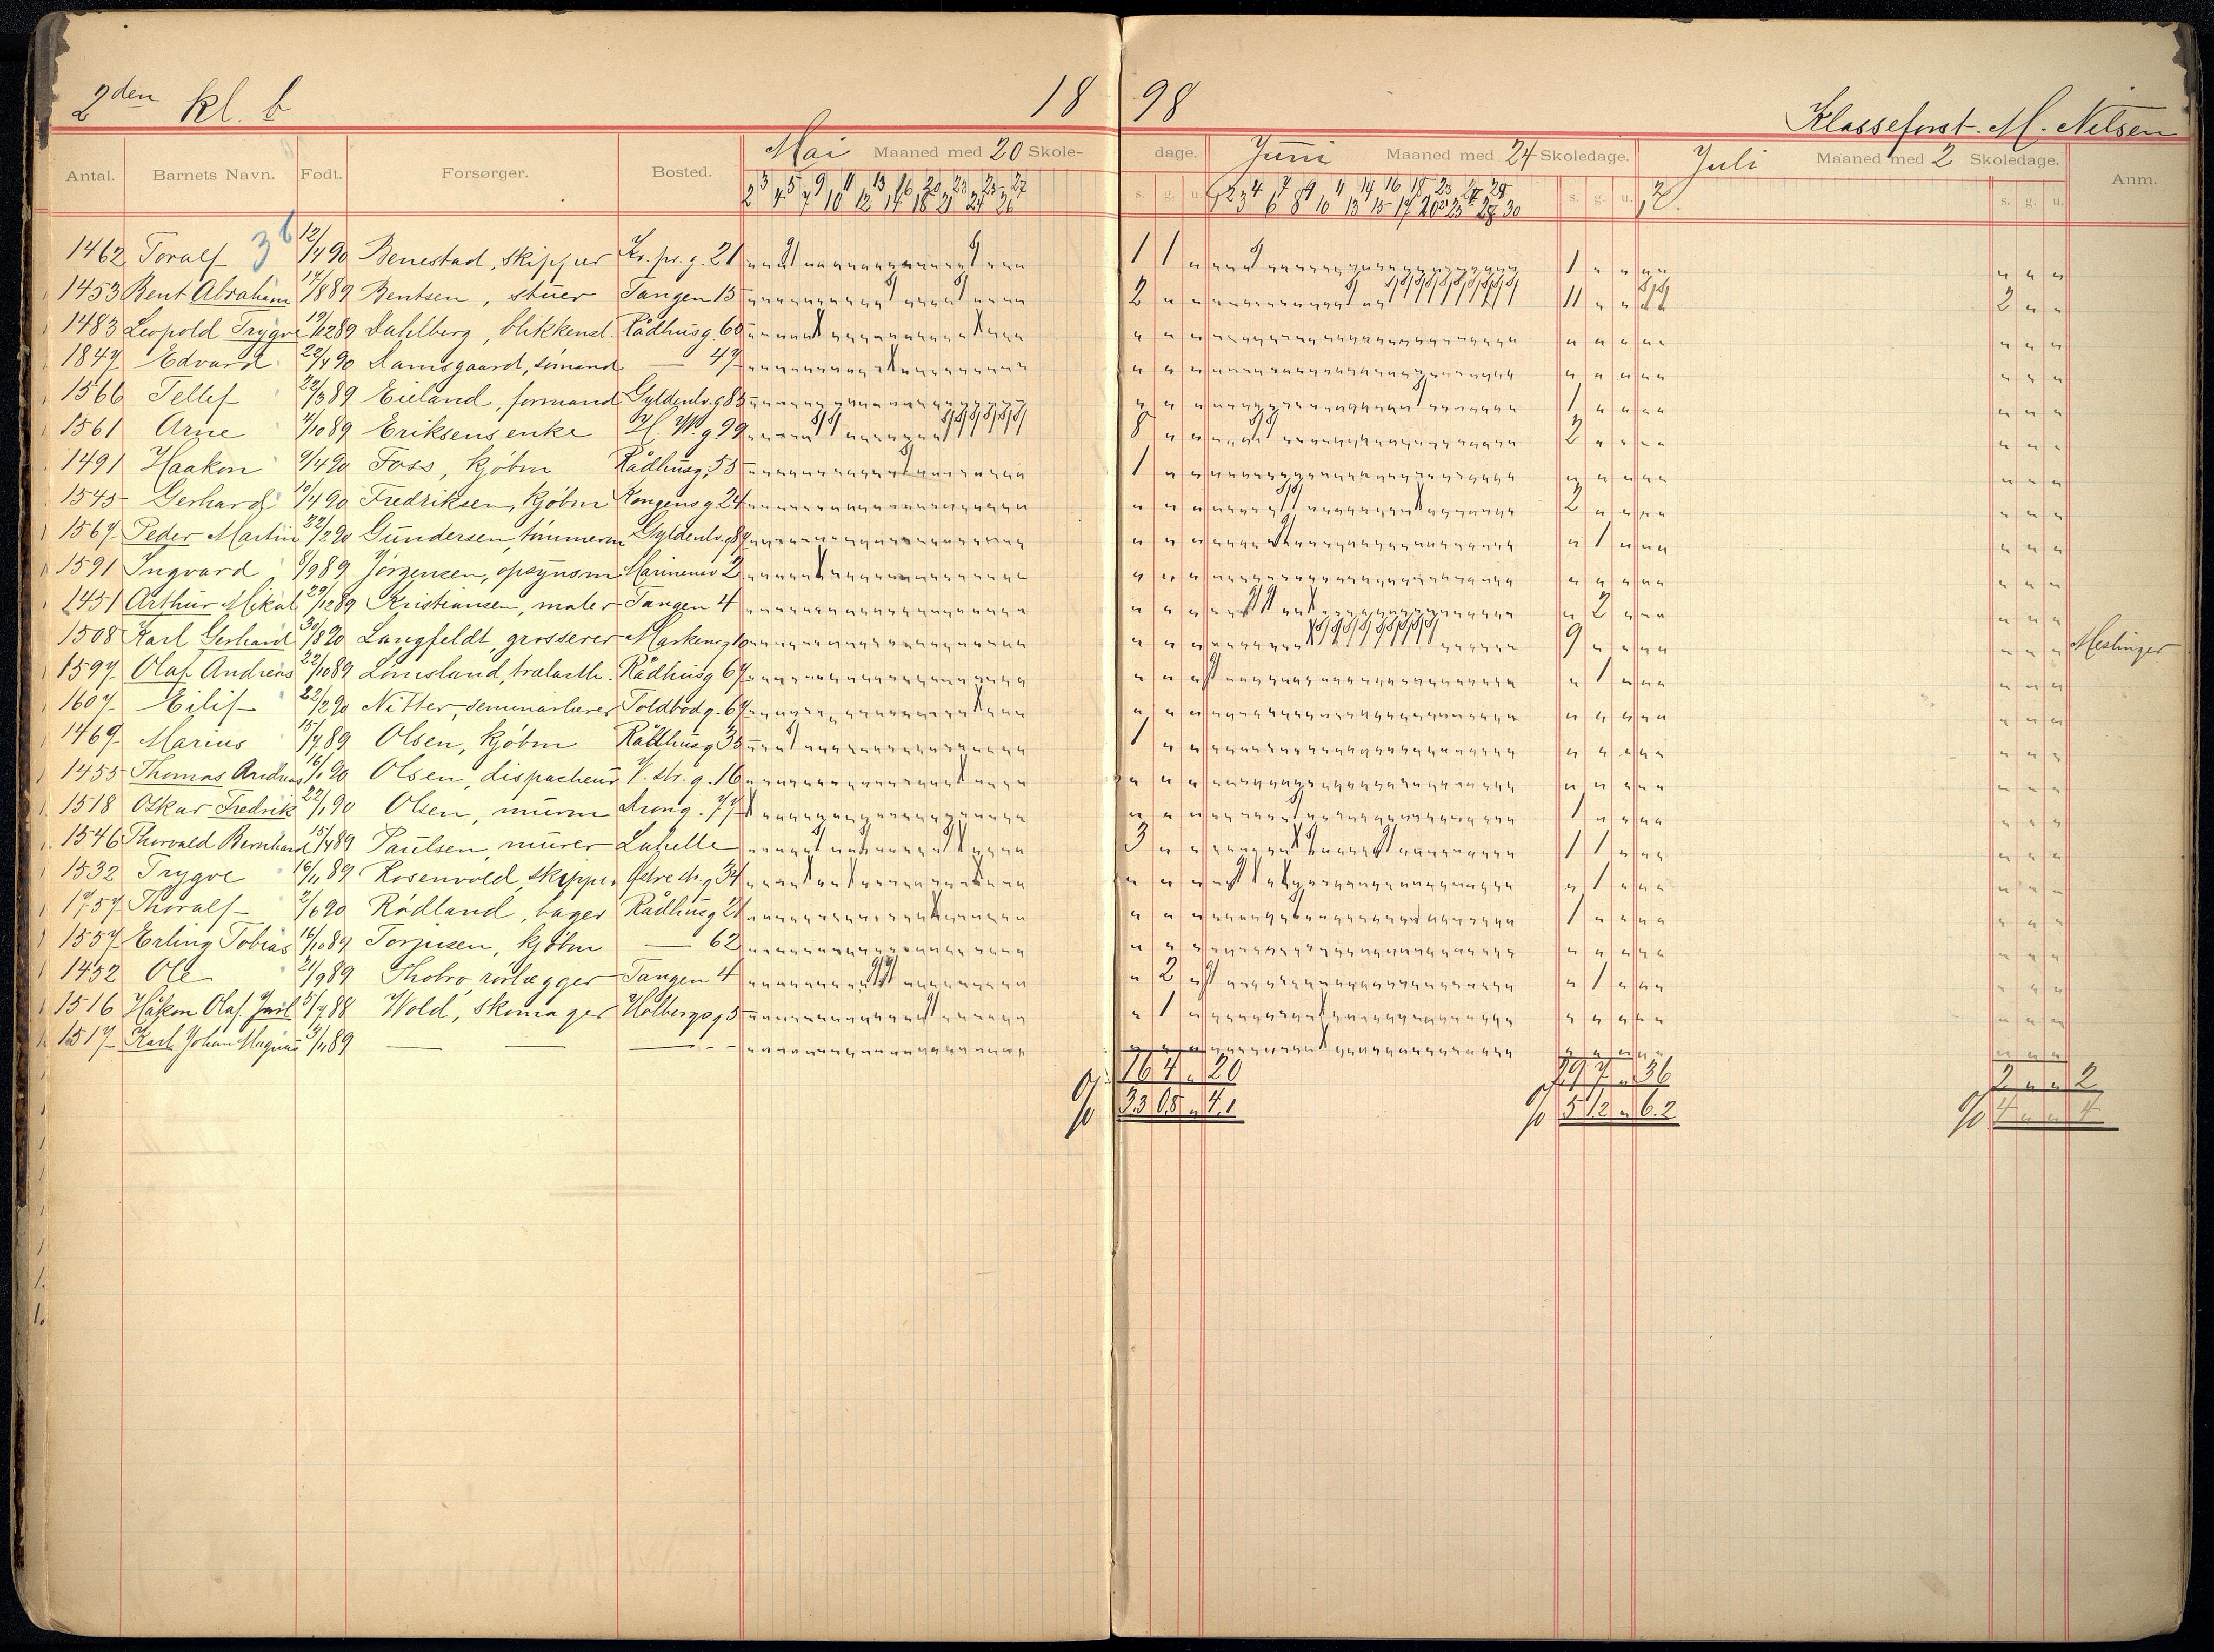 2den kl. b 18 98 Klasseforst. M. Nilsen
Mai Maaned med 20 Skoledage. Juni Maaned med 24 Skoledage. Juli Maaned med 2 Skoledage.
Antal. Barnets Navn. Født. Forsørger. Bosted. s. g. u. s. g. u. s. g. u. Anm.
3 b
1462 Toralf 12/4 90 Benestad, skipper Kr. pr. g. 21 1 1 " 1 " " " " "
1453 Bent Abraham 17/8 89 Bentsen, stuer Tangen 15 2 " " 11 " " 2 " "
1483 Leopold Trygve 19/12 89 Dahlberg, blikkensl. Rådhusg. 60 " " " " " " " " "
1847 Edvard 22/4 90 Damsgaard, sömand — 47 " " " " " " " " "
1566 Tellef 22/3 89 Eieland, formand Gyldenlv.g 83 " " " 1 " " " " "
1561 Arne 4/10 89 Eriksens enke H. W. g 99 8 " " 2 " " " " "
1491 Haakon 9/4 90 Foss, kjöbm Rådhusg. 53 1 " " " " " " " "
1545 Gerhard 19/4 90 Fredriksen, kjöbm Kongensg 24 " " " 2 " " " " "
1567 Peder Martin 22/2 90 Gundersen, tömmerm Gyldenlv.g 87 " " " " 1 " " " "
1591 Ingvard 8/9 89 Jörgensen, opsynsm Marinensv 2 " " " " " " " " "
1451 Arthur Mikal 29/12 89 Kristiansen, maler Tangen 4 " " " " 2 " " " "
1508 Karl Gerhard 30/8 90 Langfeldt, grosserer Markensg 10 " " " 9 " " " " " Meslinger
1597 Olaf Andreas 22/10 89 Lömsland, tralastb. Rådhusg 67 " " " " 1 " " " "
1607 Eilif 22/2 90 Nitter, seminarlærer Toldbodg. 67 " " " " " " " " "
1469 Marius 15/7 89 Olsen, kjöbm Rådhusg 35 1 " " " " " " " "
1455 Thomas Andreas 16/1 90 Olsen, dispacheur V. str. g. 16 " " " " " " " " "
1518 Oskar Fredrik 22/1 90 Olsen, murm Drong. 77 " " " 1 " " " " "
1546 Thorvald Bernhard 15/4 89 Paulsen, murer Lahelle 3 " " 1 1 " " " "
1532 Trygve 16/11 89 Rosenvold, skipper Østre str. g 34 " " " " 1 " " " "
1757 Thoralf 2/6 90 Rödland, bager Rådhusg 21 " " " 1 " " " " "
1557 Erling Tobias 16/10 89 Torjusen, kjöbm — 62 " " " " " " " " "
1452 Ole 21/9 89 Thobro, rörlægger Tangen 4 " 2 " " 1 " " " "
1516 Håkon Olaf Jarl 5/7 88 Wold, skomager Holbergsg 5 " 1 " " " " " " "
1517 Karl Johan Magnus 3/11 89 — — — " " " " " " " " "
16 4 " 20 29 7 " 36 2 " " 2
% 3.3 0.8 " 4.1 % 5 1.2 " 6.2 % 4 " " 4